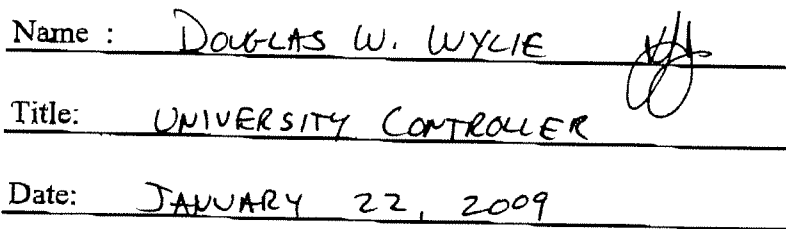 Name : DOUGLAS W. WYLIE
Title: UNIVERSITY CONTROLLER
Date: JANUARY 22, 2009